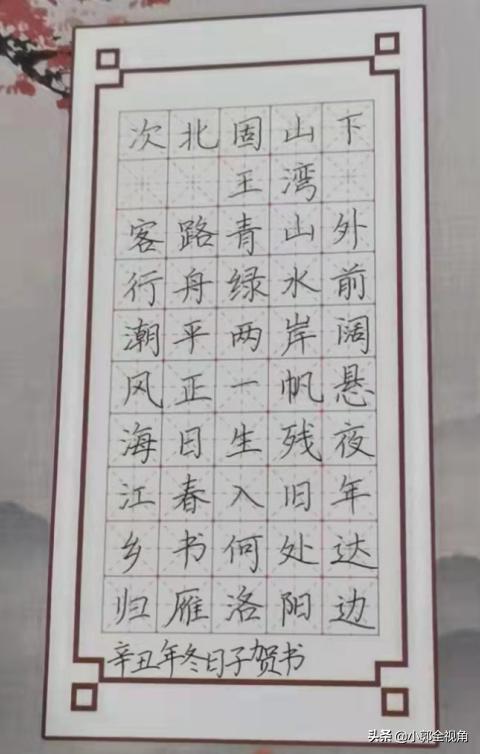 次北固山下
王湾
客路青山外
行舟绿水前
潮平两岸阔
风正一帆悬
海日生残夜
江春入旧年
乡书何处达
归雁洛阳边
辛丑年冬日子贺书
头条 @小郭全视角